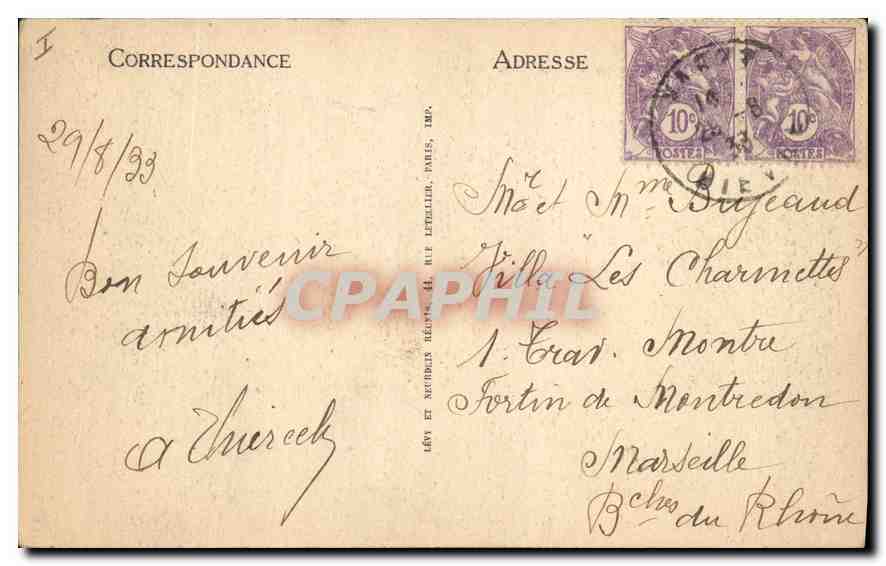 I
CORRESPONDANCE
29/8/33
Bon souvenir
amitiés
A Thierceh
ADRESSE
10c 10c
POSTES POSTES
Mr et Mme Bujeaud
Villa "Les Charmettes"
1. Trav. Montre
Fortin de Montredon
Marseille
Bches du Rhône
LÉVY ET NEURDEIN RÉUNIS, 44, RUE LETELLIER, PARIS, IMP.
CPAPHIL